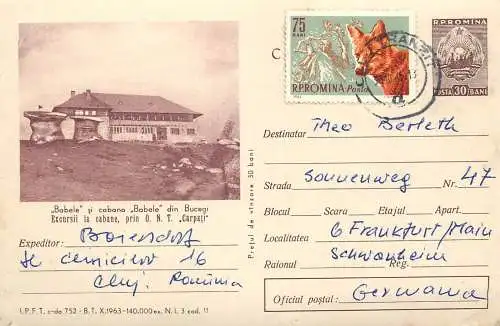 75
BANI
R.P.ROMINA Posta
TRANZIT
R.P.ROMINA
POSTA 30 BANI
C
Destinatar Theo Berleth
Strada Sonnenweg Nr. 47
Blocul Scara Etajul Apart.
Localitatea 6 Frankfurt/Main
Raionul Schwanheim Reg.
Oficiul poștal: Germania
Prețul de vînzare 30 bani
„Babele" și cabana „Babele" din Bucegi
Excursii la cabane, prin O. N. T. „Carpați"
Expeditor:
16
Cluj, România
I. P. F. T. c-da 752 - B. T. X. 1963-140.000 ex. N. I. 3 cod. 11